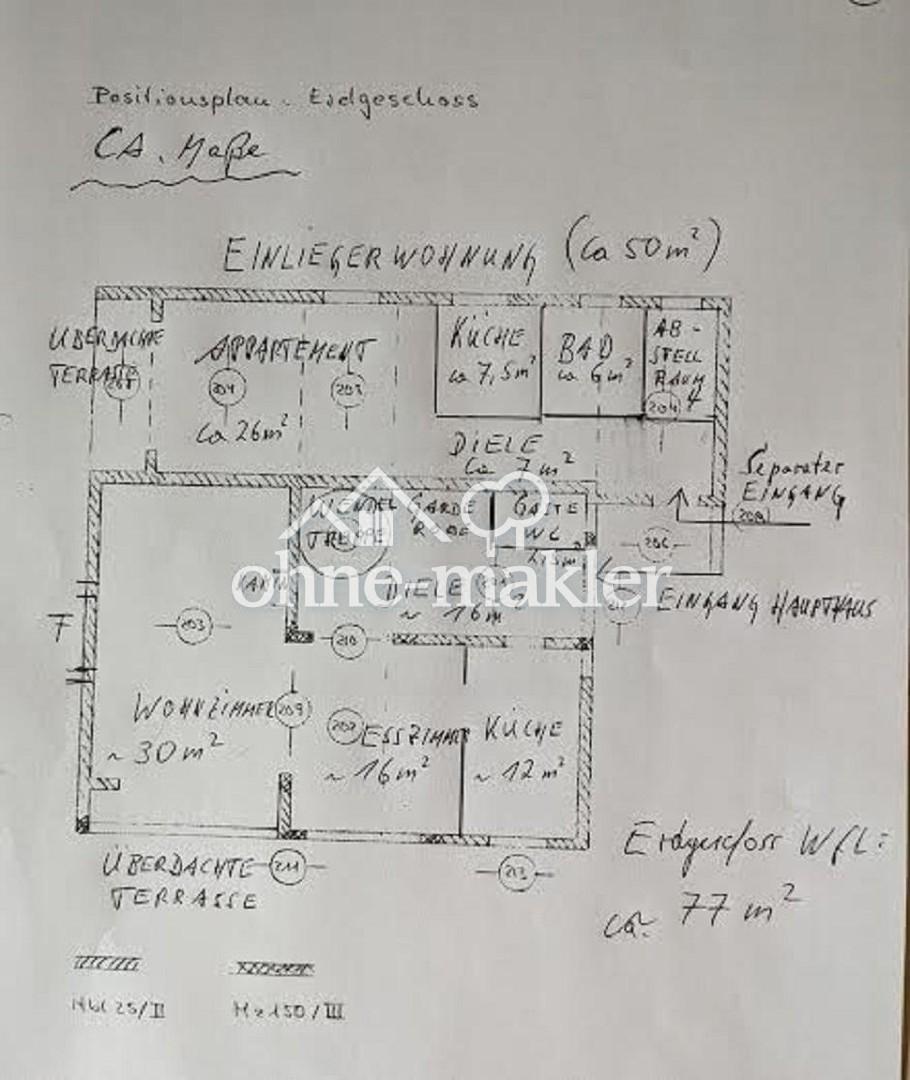 Positionsplan - Erdgeschoss
CA. Maße
EINLIEGERWOHNUNG (ca 50 m²)
ÜBERDACHTE
TERRASSE
APPARTEMENT
204
203
ca 26 m²
KÜCHE
ca 7,5 m²
BAD
ca 6 m²
AB-
STELL
RAUM
204
DIELE
ca 7 m²
Separater
EINGANG
WENDEL
TREPPE
GARDE
ROBE
GÄSTE
WC
206
ohne-makler
DIELE
~ 16 m²
EINGANG HAUPTHAUS
203
210
WOHNZIMMER
~ 30 m²
209
202
ESSZIMMER
~ 16 m²
KÜCHE
~ 12 m²
ÜBERDACHTE
TERRASSE
211
213
Erdgeschoss Wfl:
ca. 77 m²
Hbl 25/II
Mz 150/III